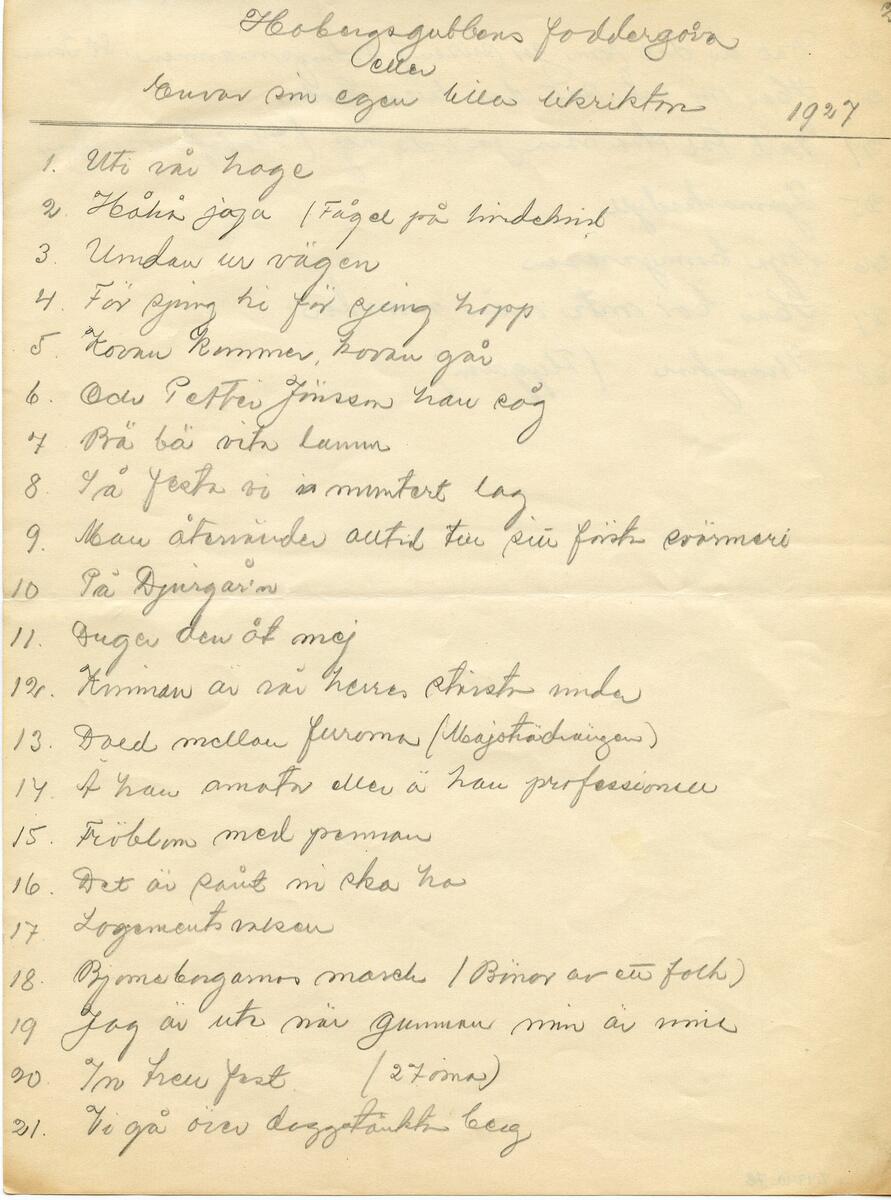 Hobergsgubbens foddergåva
eller
Envar sin egen lilla likriktare 1927
1. Uti vår hage
2. Håhå jaja (Fågel på lindekvist
3. Undan ur vägen
4. För sjung hi för sjung hopp
5. Kovan kommer, kovan går
6. Och Petter Jönsson han såg
7 Bä bä vita lamm
8. Så festa vi i muntert lag
9. Man återvänder alltid till sin första svärmeri
10 På Djurgår'n
11. Duger den åt mej
12. Kvinnan är vår herres största under
13. Dold mellan furorna (Majstädrängen)
14. Ä han amatör eller ä han professionell
15. Fröblom med pennan
16. Det är sånt ni ska ha
17. Logementsvalsen
18. Björneborgarnas march (Bönor av ett folk)
19 Jag är ute när gumman min är inne
20. In treu fest (27 orna)
21. Vi gå över daggstänkta berg